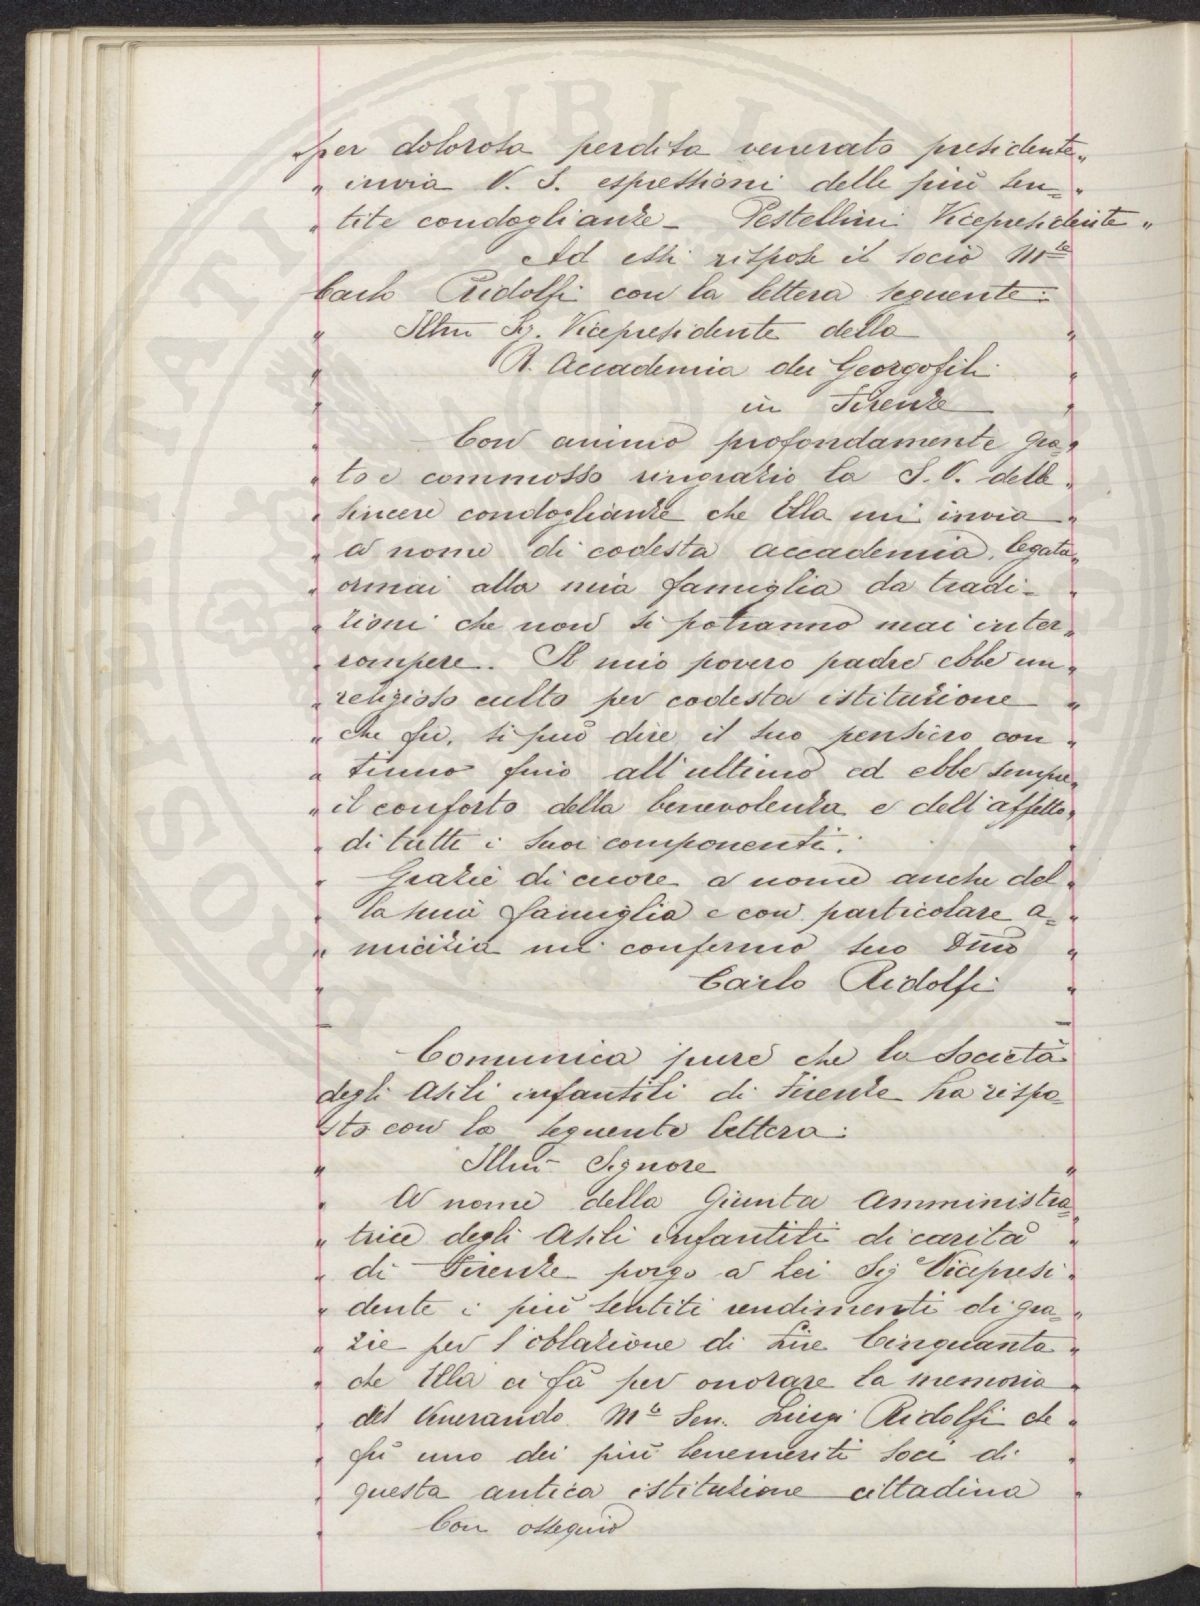 „per dolorosa perdita venerato presidente„
„ invia V. S. espressioni delle più sen= „
„ tite condoglianze – Pestellini Vicepresidente „
Ad essi rispose il socio M.se
Carlo Ridolfi con la lettera seguente:
„ Illmo Sig. Vicepresidente della „
„ R. Accademia dei Georgofili „
„ in Firenze „
„ Con animo profondamente gra„
„ to e commosso ringrazio la S. V. delle „
„ sincere condoglianze che Ella mi invia „
„ a nome di codesta accademia, legata„
„ ormai alla mia famiglia da tradi– „
„ zioni che non si potranno mai inter„
„ rompere. Il mio povero padre ebbe un„
„ religioso culto per codesta istituzione „
„ che fu, si può dire il suo pensiero con „
„ tinuo fino all'ultimo ed ebbe sempre„
„ il conforto della benevolenza e dell'affetto„
„ di tutti i suoi componenti. „
„ Grazie di cuore a nome anche del „
„ la mia famiglia e con particolare a= „
„ micizia mi confermo suo Dmo „
„ Carlo Ridolfi „
Comunica pure che la Società
degli Asili infantili di Firenze ha rispo=
sto con la seguente lettera:
„ Illmo Signore „
„ A nome della Giunta Amministra=
„ trice degli Asili infantili di carità „
„ di Firenze porgo a Lei Sig Vicepresi „
„ dente i più sentiti rendimenti di gra= „
„ zie per l'oblazione di Lire Cinquanta „
„ che Ella ci fà per onorare la memoria „
„ del Venerando M.se Sen. Luigi Ridolfi che „
„ fù uno dei più benemeriti soci di „
„ questa antica istituzione cittadina „
„ Con ossequio